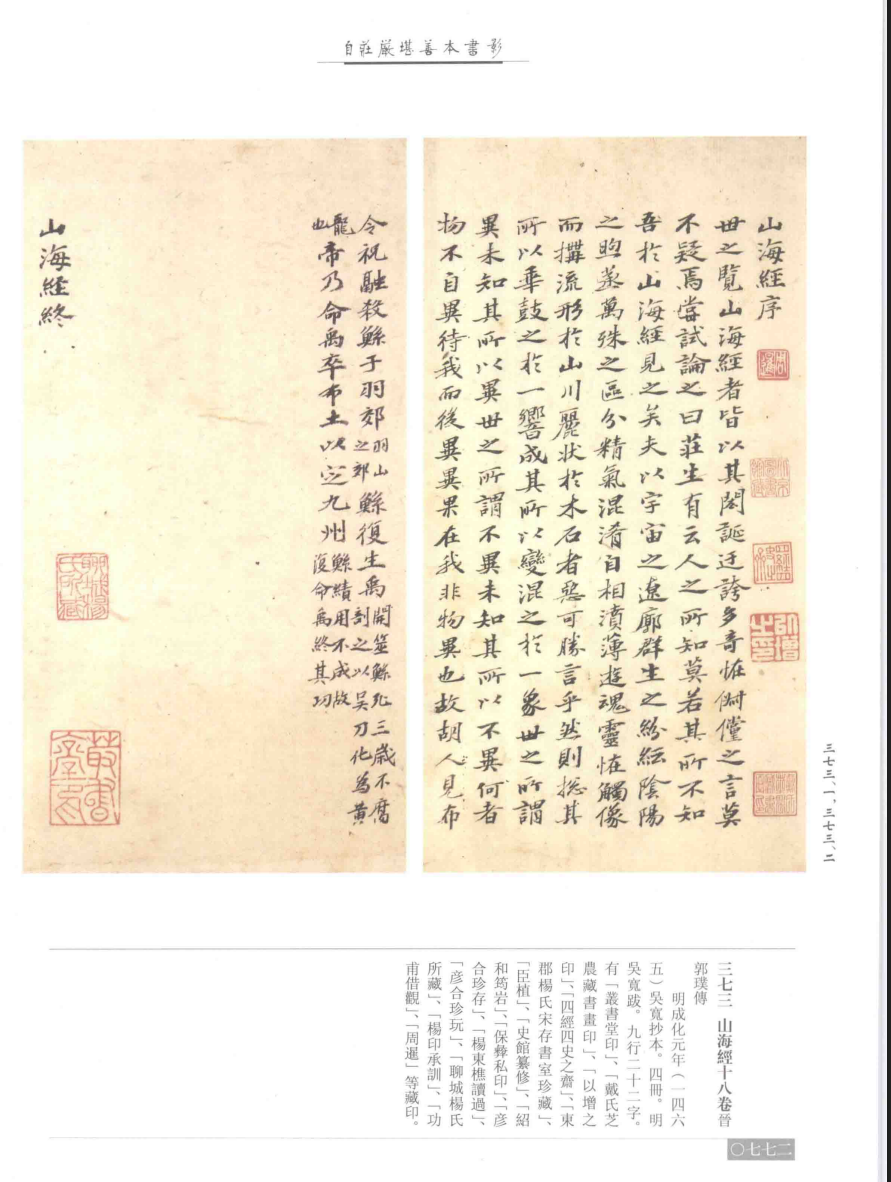 自莊嚴堪善本書影
山海經序
周暹
以增之印
世之覽山海經者皆以其閎誕迂誇多奇怪俶儻之言莫
不疑焉嘗試論之曰莊生有云人之所知莫若其所不知
吾於山海經見之矣夫以宇宙之遼廓群生之紛紜陰陽
之煦蒸萬殊之區分精氣混淆自相濆薄遊魂靈怪觸像
而搆流形於山川麗狀於木石者惡可勝言乎然則摠其
所以乖鼓之於一響成其所以變混之於一象世之所謂
異未知其所以異世之所謂不異未知其所以不異何者
物不自異待我而後異異果在我非物異也故胡人見布
令祝融殺鯀于羽郊羽山之郊鯀復生禹開筮鯀死三歲不腐剖之以吳刀化為黃
龍也帝乃命禹卒布土以定九州鯀績用不成故復命禹終其功
山海經終
聊城楊氏所藏
叢書堂印
三七三、一、三七三、二
三七三 山海經十八卷晉
郭璞傳
明成化元年（一四六
五）吳寬抄本。四冊。明
吳寬跋。九行二十二字。
有「叢書堂印」、「戴氏芝
農藏書畫印」、「以增之
印」、「四經四史之齋」、「東
郡楊氏宋存書室珍藏」、
「臣植」、「史館纂修」、「紹
和筠岩」、「保彝私印」、「彥
合珍存」、「楊東樵讀過」、
「彥合珍玩」、「聊城楊氏
所藏」、「楊印承訓」、「功
甫借觀」、「周暹」等藏印。
〇七七二